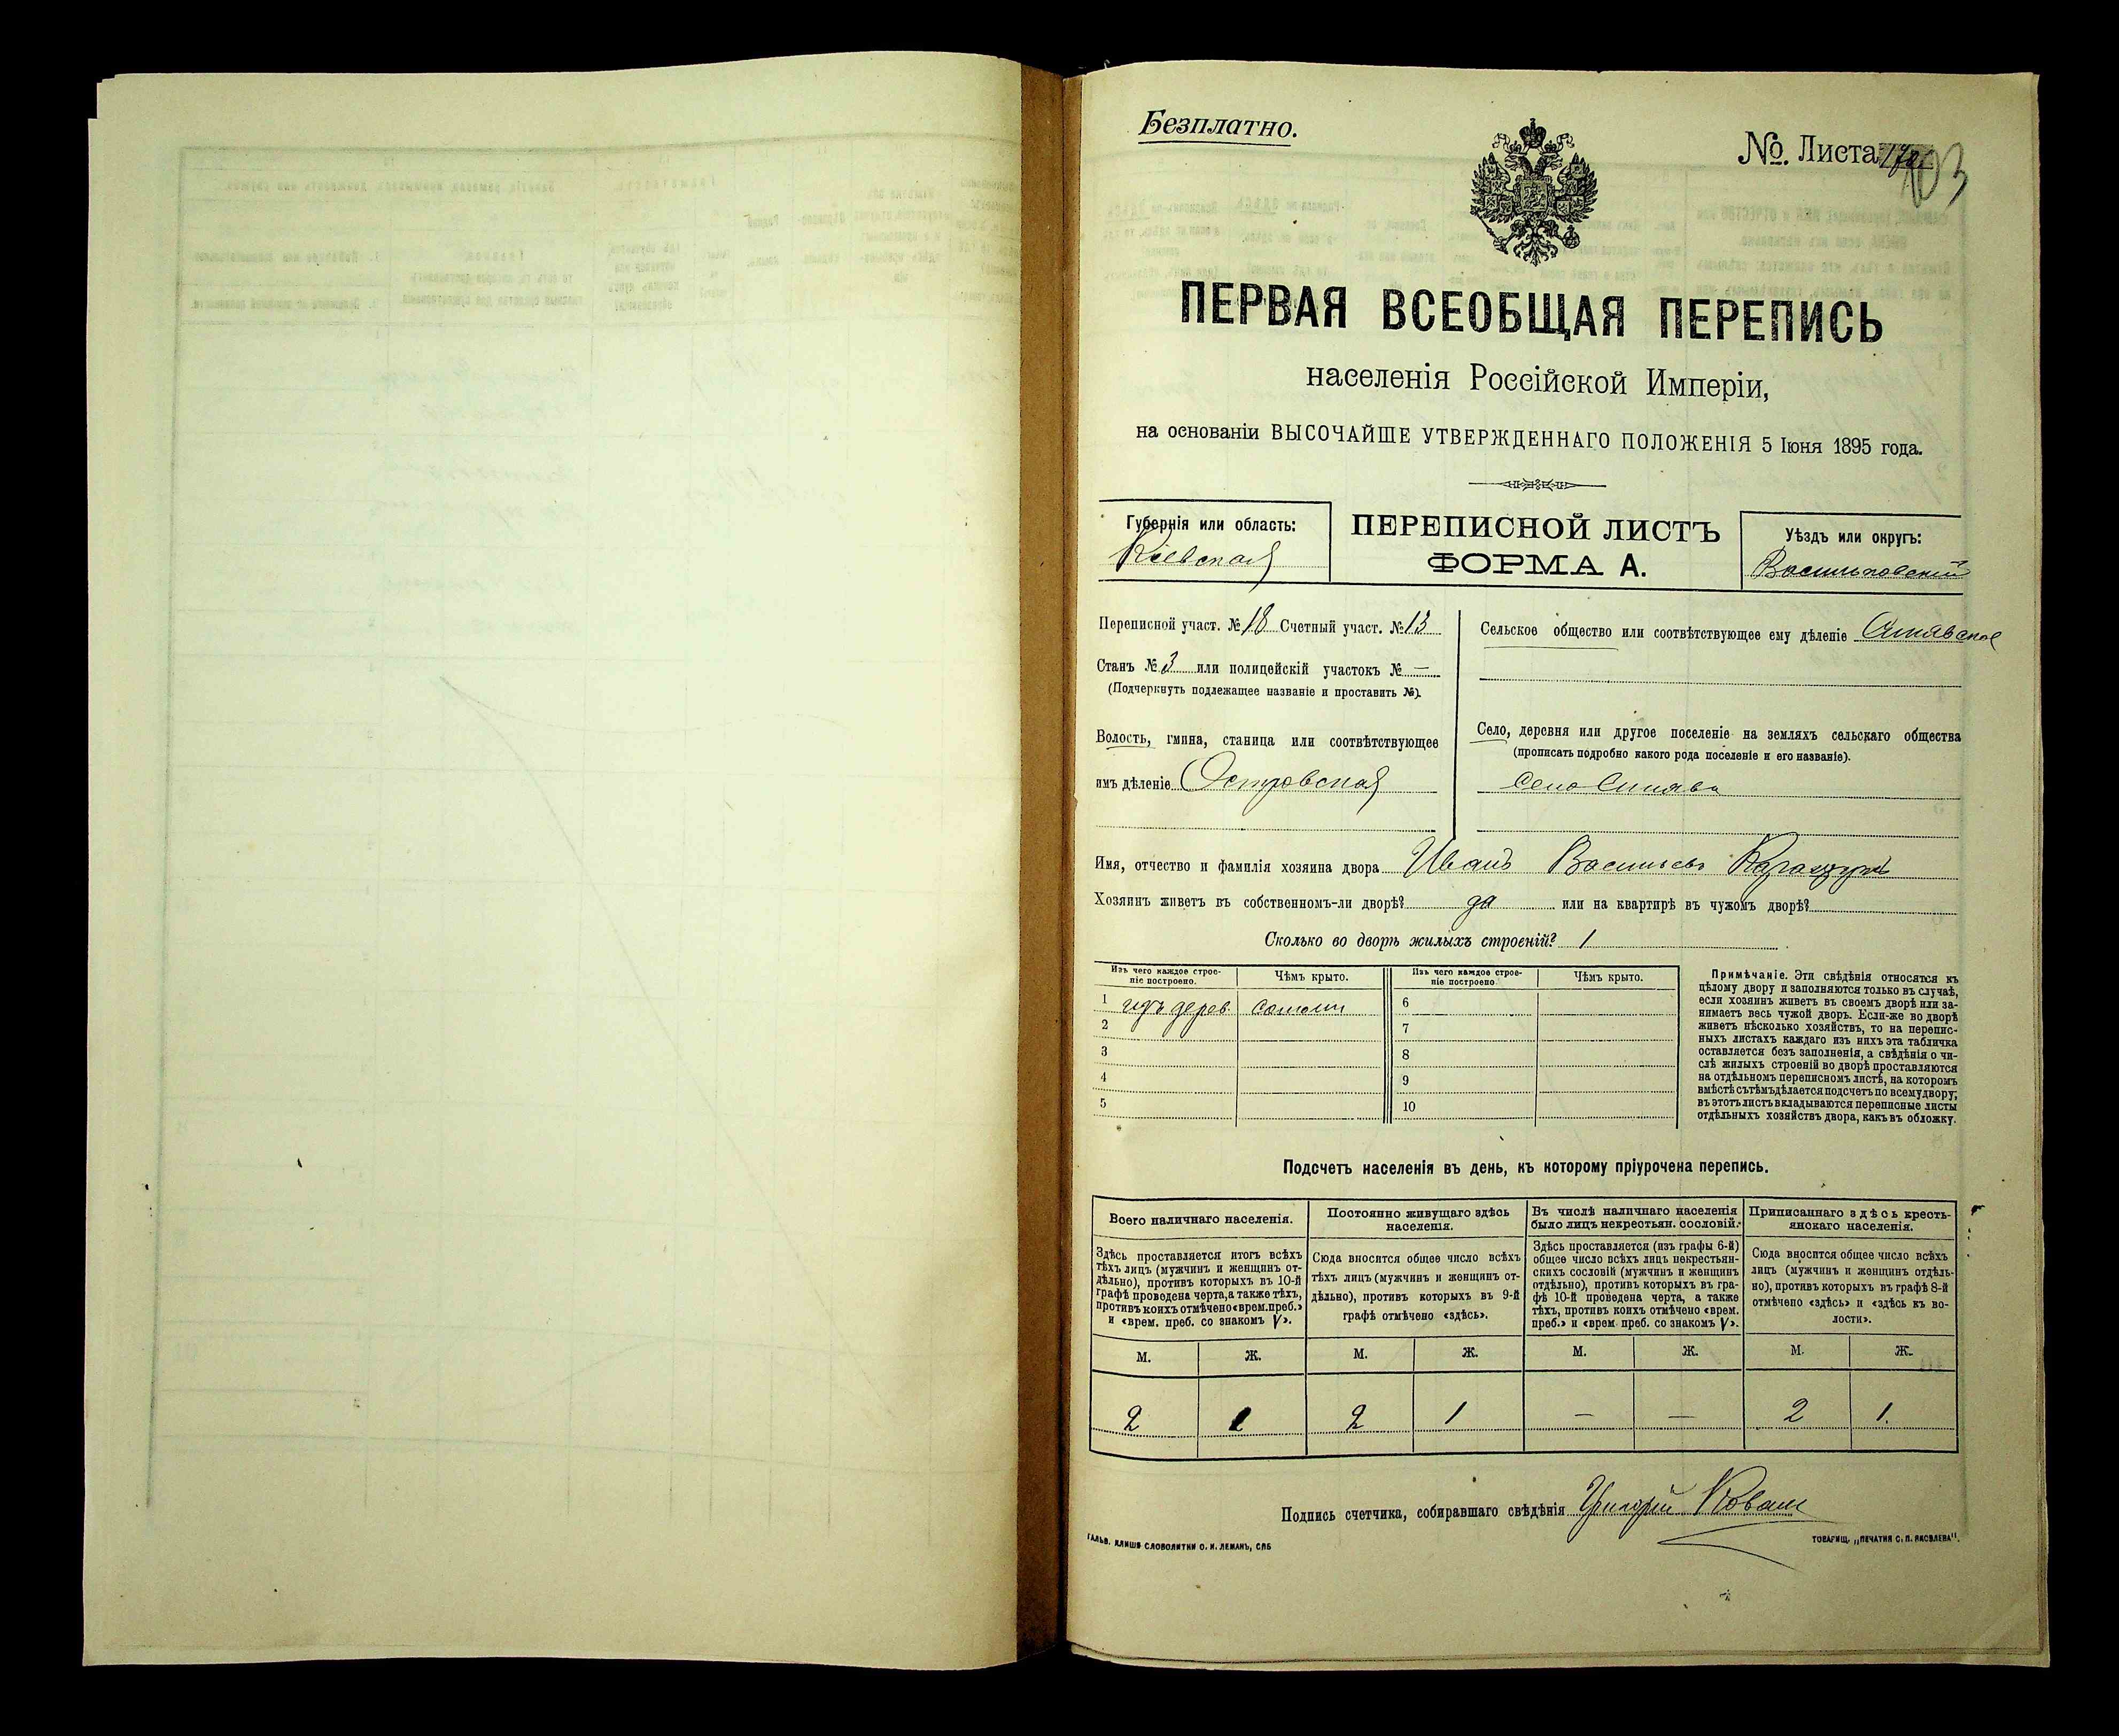 Безплатно.
№. Листа
103
ПЕРВАЯ ВСЕОБЩАЯ ПЕРЕПИСЬ
населенія Россійской Имперіи,
на основаніи ВЫСОЧАЙШЕ УТВЕРЖДЕННАГО ПОЛОЖЕНІЯ 5 Іюня 1895 года.
Губернія или область:
Кіевская
ПЕРЕПИСНОЙ ЛИСТЪ
ФОРМА А.
Уѣздъ или округъ:
Васильковскій
Переписной участ. № 18 Счетный участ. № 13
Станъ № 3 или полицейскій участокъ № —
(Подчеркнуть подлежащее названіе и проставить №).
Волость, гмина, станица или соотвѣтствующее
имъ дѣленіе Островская
Сельское общество или соотвѣтствующее ему дѣленіе Синявское
Село, деревня или другое поселеніе на земляхъ сельскаго общества
(прописать подробно какого рода поселеніе и его названіе).
Село Синява
Имя, отчество и фамилія хозяина двора Иванъ Васильевъ
Хозяинъ живетъ въ собственномъ-ли дворѣ? да или на квартирѣ въ чужомъ дворѣ?
Сколько во дворѣ жилыхъ строеній? 1
Изъ чего каждое строе-
ніе построено.
Чѣмъ крыто.
Изъ чего каждое строе-
ніе построено.
Чѣмъ крыто.
1 изъ дерев. соломи 6
2 7
3 8
4 9
5 10
Примѣчаніе. Эти свѣдѣнія относятся къ
цѣлому двору и заполняются только въ случаѣ,
если хозяинъ живетъ въ своемъ дворѣ или за-
нимаетъ весь чужой дворъ. Если-же во дворѣ
живетъ нѣсколько хозяйствъ, то на перепис-
ныхъ листахъ каждаго изъ нихъ эта табличка
оставляется безъ заполненія, а свѣдѣнія о чи-
слѣ жилыхъ строеній во дворѣ проставляются
на отдѣльномъ переписномъ листѣ, на которомъ
вмѣстѣ съ тѣмъ дѣлается подсчетъ по всему двору;
въ этотъ листъ вкладываются переписные листы
отдѣльныхъ хозяйствъ двора, какъ въ обложку.
Подсчетъ населенія въ день, къ которому пріурочена перепись.
Всего наличнаго населенія.
Здѣсь проставляется итогъ всѣхъ
тѣхъ лицъ (мужчинъ и женщинъ от-
дѣльно), противъ которыхъ въ 10-й
графѣ проведена черта, а также тѣхъ,
противъ коихъ отмѣчено «врем. преб.»
и «врем. преб. со знакомъ V».
Постоянно живущаго здѣсь
населенія.
Сюда вносится общее число всѣхъ
тѣхъ лицъ (мужчинъ и женщинъ от-
дѣльно), противъ которыхъ въ 9-й
графѣ отмѣчено «здѣсь».
Въ числѣ наличнаго населенія
было лицъ некрестьян. сословій.
Здѣсь проставляется (изъ графы 6-й)
общее число всѣхъ лицъ некрестьян-
скихъ сословій (мужчинъ и женщинъ
отдѣльно), противъ которыхъ въ гра-
фѣ 10-й проведена черта, а также
тѣхъ, противъ коихъ отмѣчено «врем.
преб.» и «врем. преб. со знакомъ V».
Приписаннаго здѣсь кресть-
янскаго населенія.
Сюда вносится общее число всѣхъ
лицъ (мужчинъ и женщинъ отдѣль-
но), противъ которыхъ въ графѣ 8-й
отмѣчено «здѣсь» и «здѣсь къ во-
лости».
М. Ж. М. Ж. М. Ж. М. Ж.
2 1 2 1 — — 2 1.
Подпись счетчика, собиравшаго свѣдѣнія Григорій Коваль
ГАЛЬВ. КЛИШЕ СЛОВОЛИТНИ О. И. ЛЕМАНЪ, СПБ
ТОВАРИЩ. „ПЕЧАТНЯ С. П. ЯКОВЛЕВА".